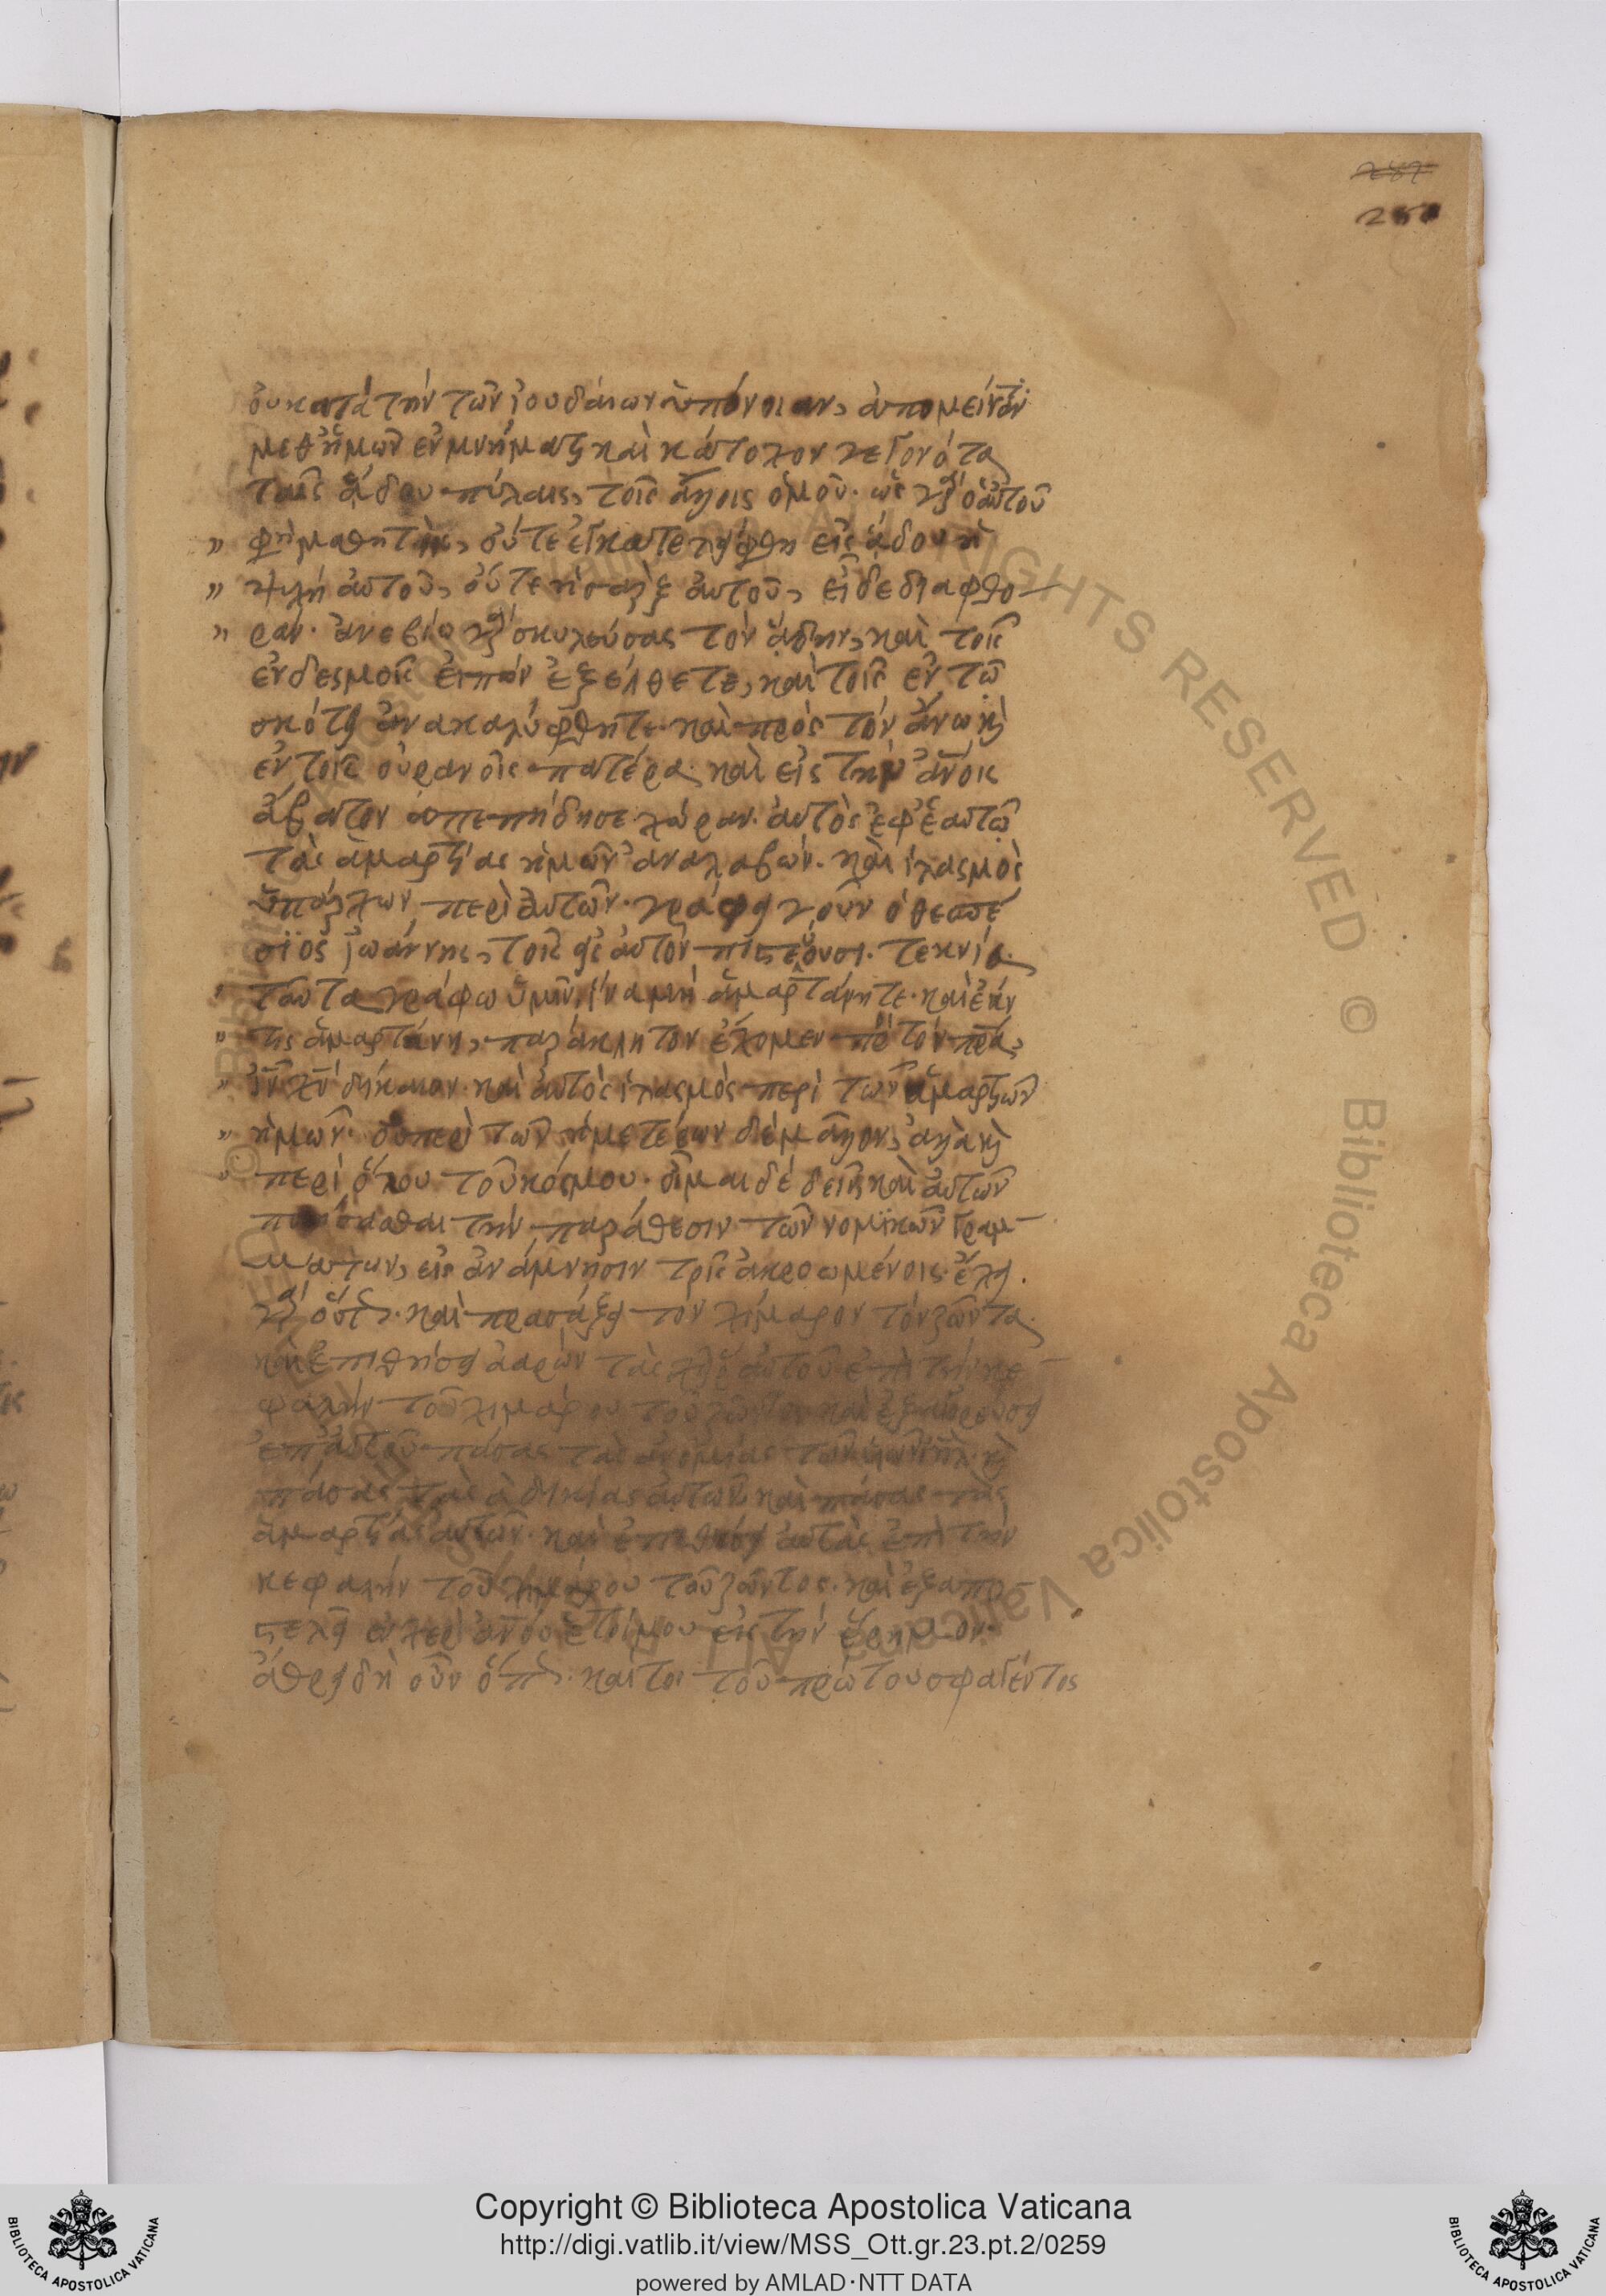 258
οὐ κατὰ τὴν τῶν ἰουδαίων ὑπόνοιαν, ἀπομείναντα
μεθ' ἡμῶν ἐν μνήμασι καὶ κάτοχον γεγονότα
ταῖς ἅδου πύλαις, τοῖς ἄλλοις ὁμοῦ. ὡς γὰρ ὁ αὐτοῦ
φησὶ μαθητὴς, οὔτε ἐγκατελήφθη εἰς ἅδου ἡ
ψυχὴ αὐτοῦ, οὔτε ἡ σὰρξ αὐτοῦ, εἶδε διαφθο-
ράν. ἀνεβίω γὰρ σκυλεύσας τὸν ἅδην, καὶ τοῖς
ἐν δεσμοῖς εἰπὼν ἐξέλθετε, καὶ τοῖς ἐν τῶ
σκότει ἀνακαλύφθητε. καὶ πρὸς τὸν ἄνω καὶ
ἐν τοῖς οὐρανοῖς πατέρα. καὶ εἰς τὴν ἀνοις
ἄβατον ἀπεπήδησε χώραν. αὐτὸς ἐφ' ἑαυτῶ
τὰς ἁμαρτίας ἡμῶν ἀναλαβών. καὶ ἱλασμὸς
ὑπάρχων περὶ αὐτῶν. γράφει γοῦν ὁ θεσπέ
σιος ἰωάννης, τοῖς εἰς αὐτὸν πιστεύουσι. τεκνία.
ταῦτα γράφω ὑμῖν, ἵνα μὴ ἁμαρτάνητε. καὶ ἐάν
τις ἁμαρτάνη, παράκλητον ἔχομεν πρὸς τὸν πρα,
ιν χν δίκαιον. καὶ αὐτὸς ἱλασμὸς περὶ τῶν ἁμαρτιῶν
ἡμῶν. οὐ περὶ τῶν ἡμετέρων δὲ μόνον, ἀλλὰ καὶ
περὶ ὅλου τοῦ κόσμου. οἶμαι δὲ δεῖν καὶ αὐτῶν
ποιήσασθαι τὴν παράθεσιν τῶν νομικῶν γραμ-
μάτων, εἰς ἀνάμνησιν τοῖς ἀκροωμένοις. ἔχει
γὰρ οὕτως. καὶ προσάξει τὸν χίμαρον τὸν ζῶντα.
καὶ ἐπιθήσει ἀαρὼν τὰς χεῖρας αὐτοῦ ἐπὶ τὴν κε-
φαλὴν τοῦ χιμάρου τοῦ ζῶντος καὶ ἐξαγορεύσει
ἐπ' αὐτοῦ πάσας τὰς ἀνομίας τῶν υἱῶν ιηλ. καὶ
πάσας τὰς ἀδικίας αὐτῶν καὶ πάσας τὰς
ἁμαρτίας αὐτῶν. καὶ ἐπιθήσει αὐτὰς ἐπὶ τὴν
κεφαλὴν τοῦ χιμάρου τοῦ ζῶντος. καὶ ἐξαπο
στελεῖ ἐν χειρὶ ἀνου ἑτοίμου εἰς τὴν ἔρημον.
ἄθρει δὴ οὖν ὅπως. καίτοι τοῦ πρώτου σφαγέντος
Copyright © Biblioteca Apostolica Vaticana
http://digi.vatlib.it/view/MSS_Ott.gr.23.pt.2/0259
powered by AMLAD·NTT DATA
BIBLIOTECA APOSTOLICA VATICANA
BIBLIOTECA APOSTOLICA VATICANA